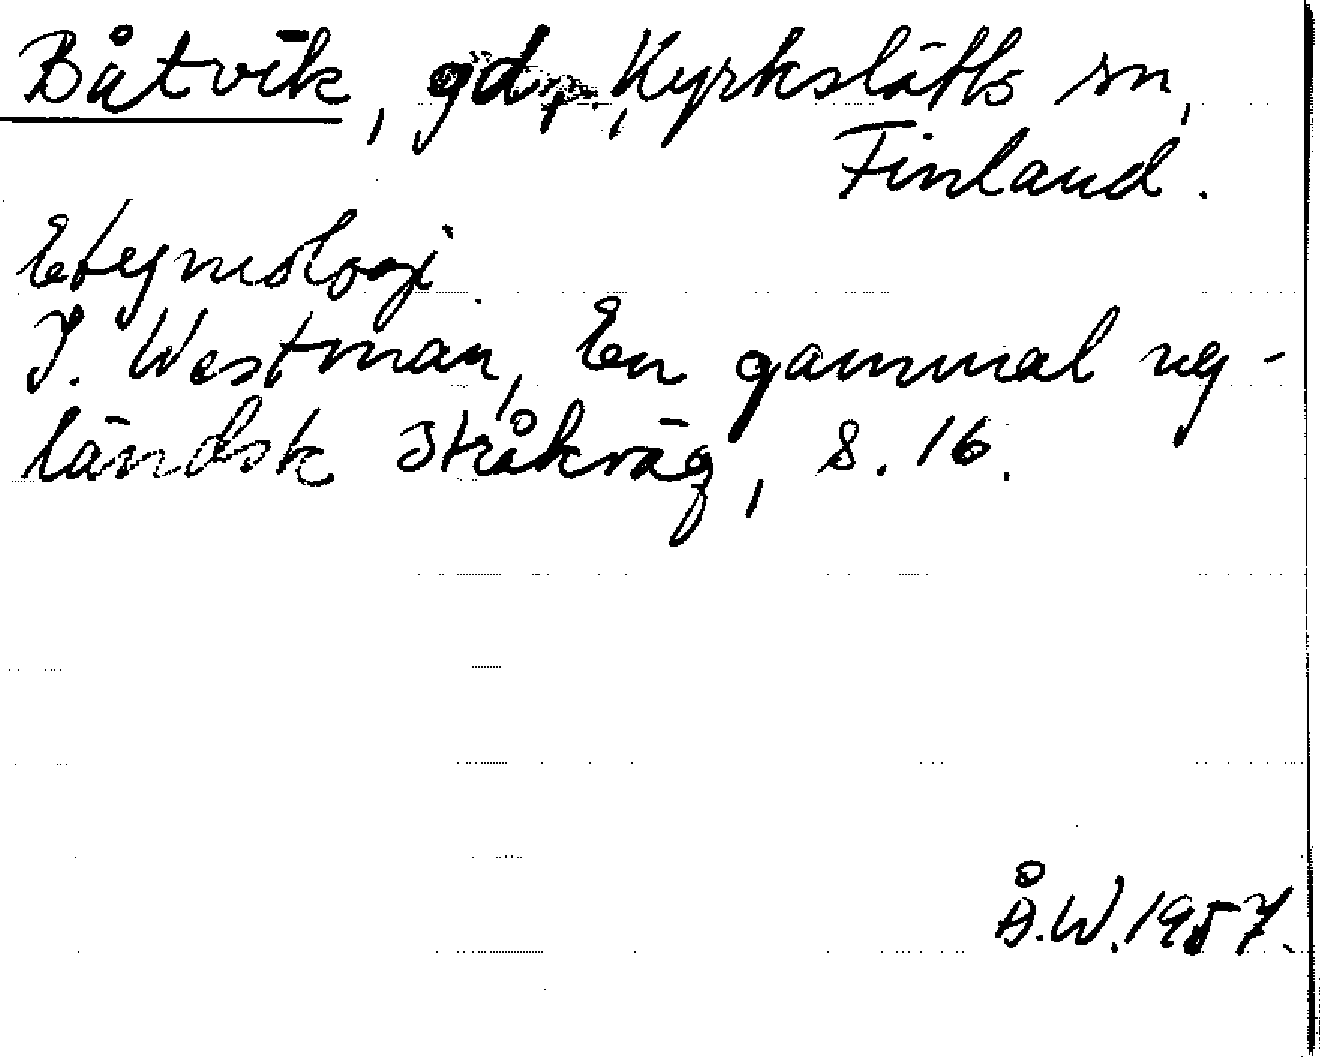 Båtvik, gd, Kyrkslätts sn,
Finland.
Etymologi.
I. Westman, En gammal ny-
ländsk stråkväg, s. 16.
Å.W. 1957.